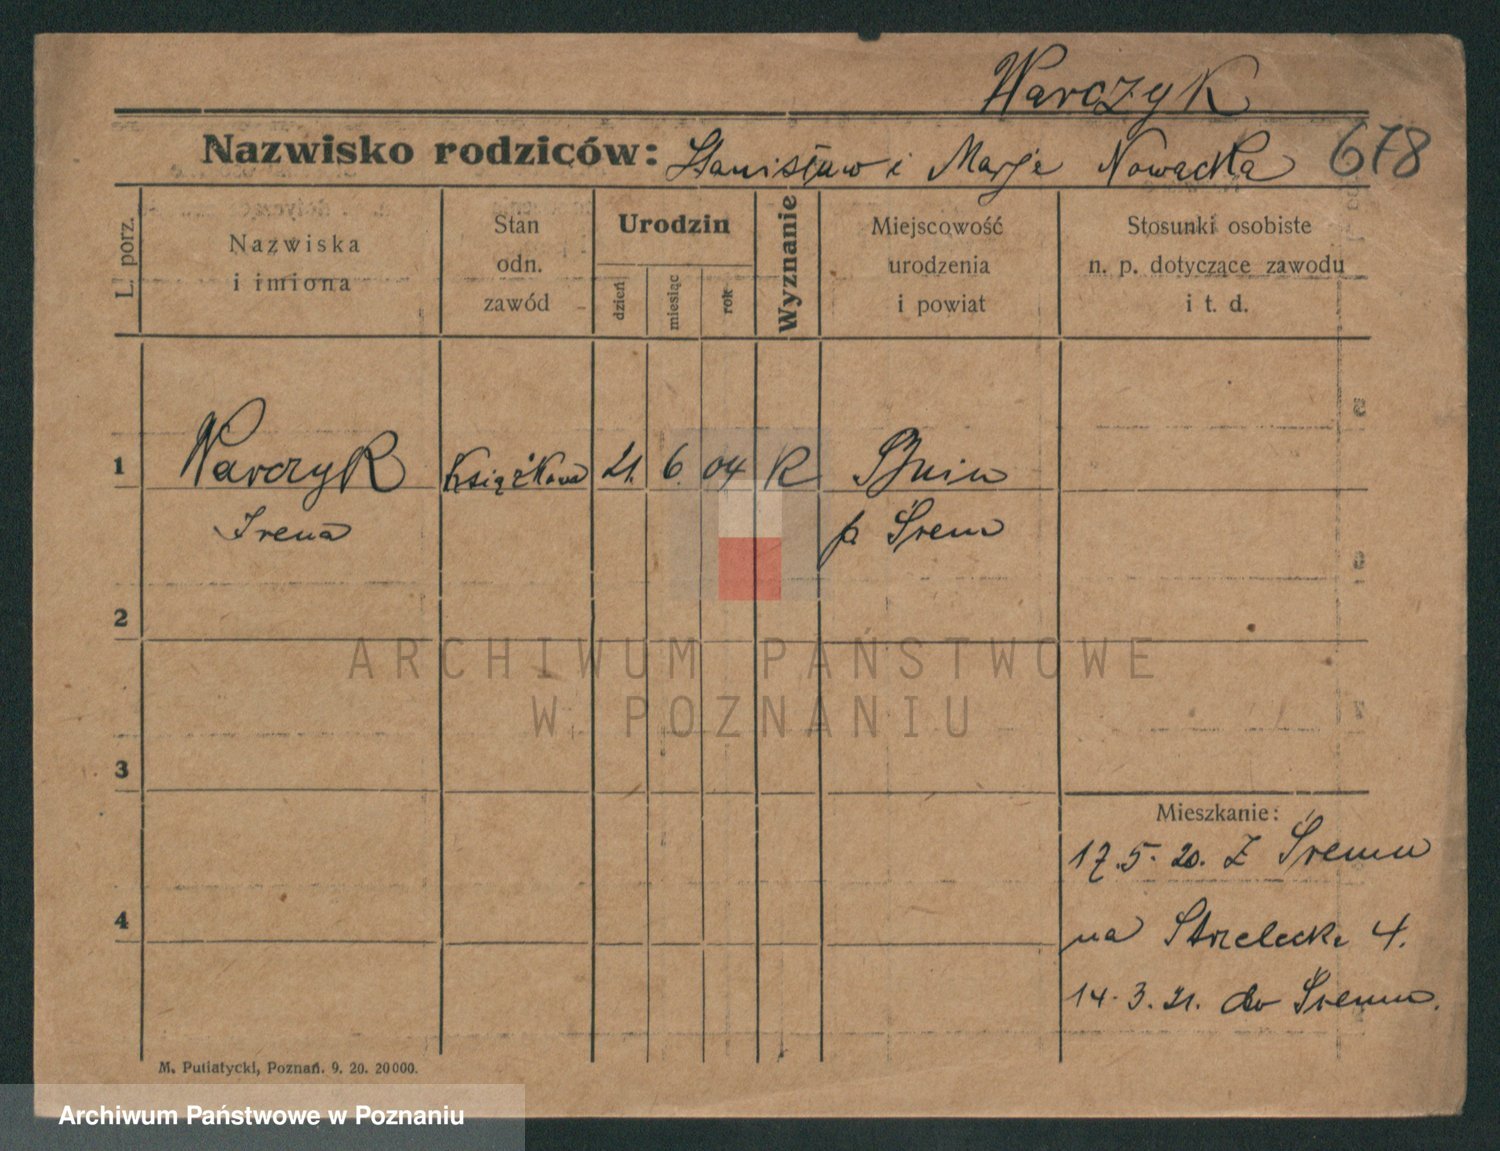 Warczyk
Nazwisko rodziców: Stanisław i Marje Nowacka 678
L. porz.
Nazwiska
i imiona
Stan
odn.
zawód
Urodzin
dzień
miesiąc
rok
Wyznanie
Miejscowość
urodzenia
i powiat
Stosunki osobiste
n. p. dotyczące zawodu
i t. d.
1 Warczyk Książkowa 21. 6. 04 K Bnin
Irena p. Śrem
2
ARCHIWUM PAŃSTWOWE
W POZNANIU
3
Mieszkanie:
17.5.20. z Śremu
4 na Strzelecka 4.
14.3.21. do Śremu.
M. Putiatycki, Poznań. 9. 20. 20000.
Archiwum Państwowe w Poznaniu